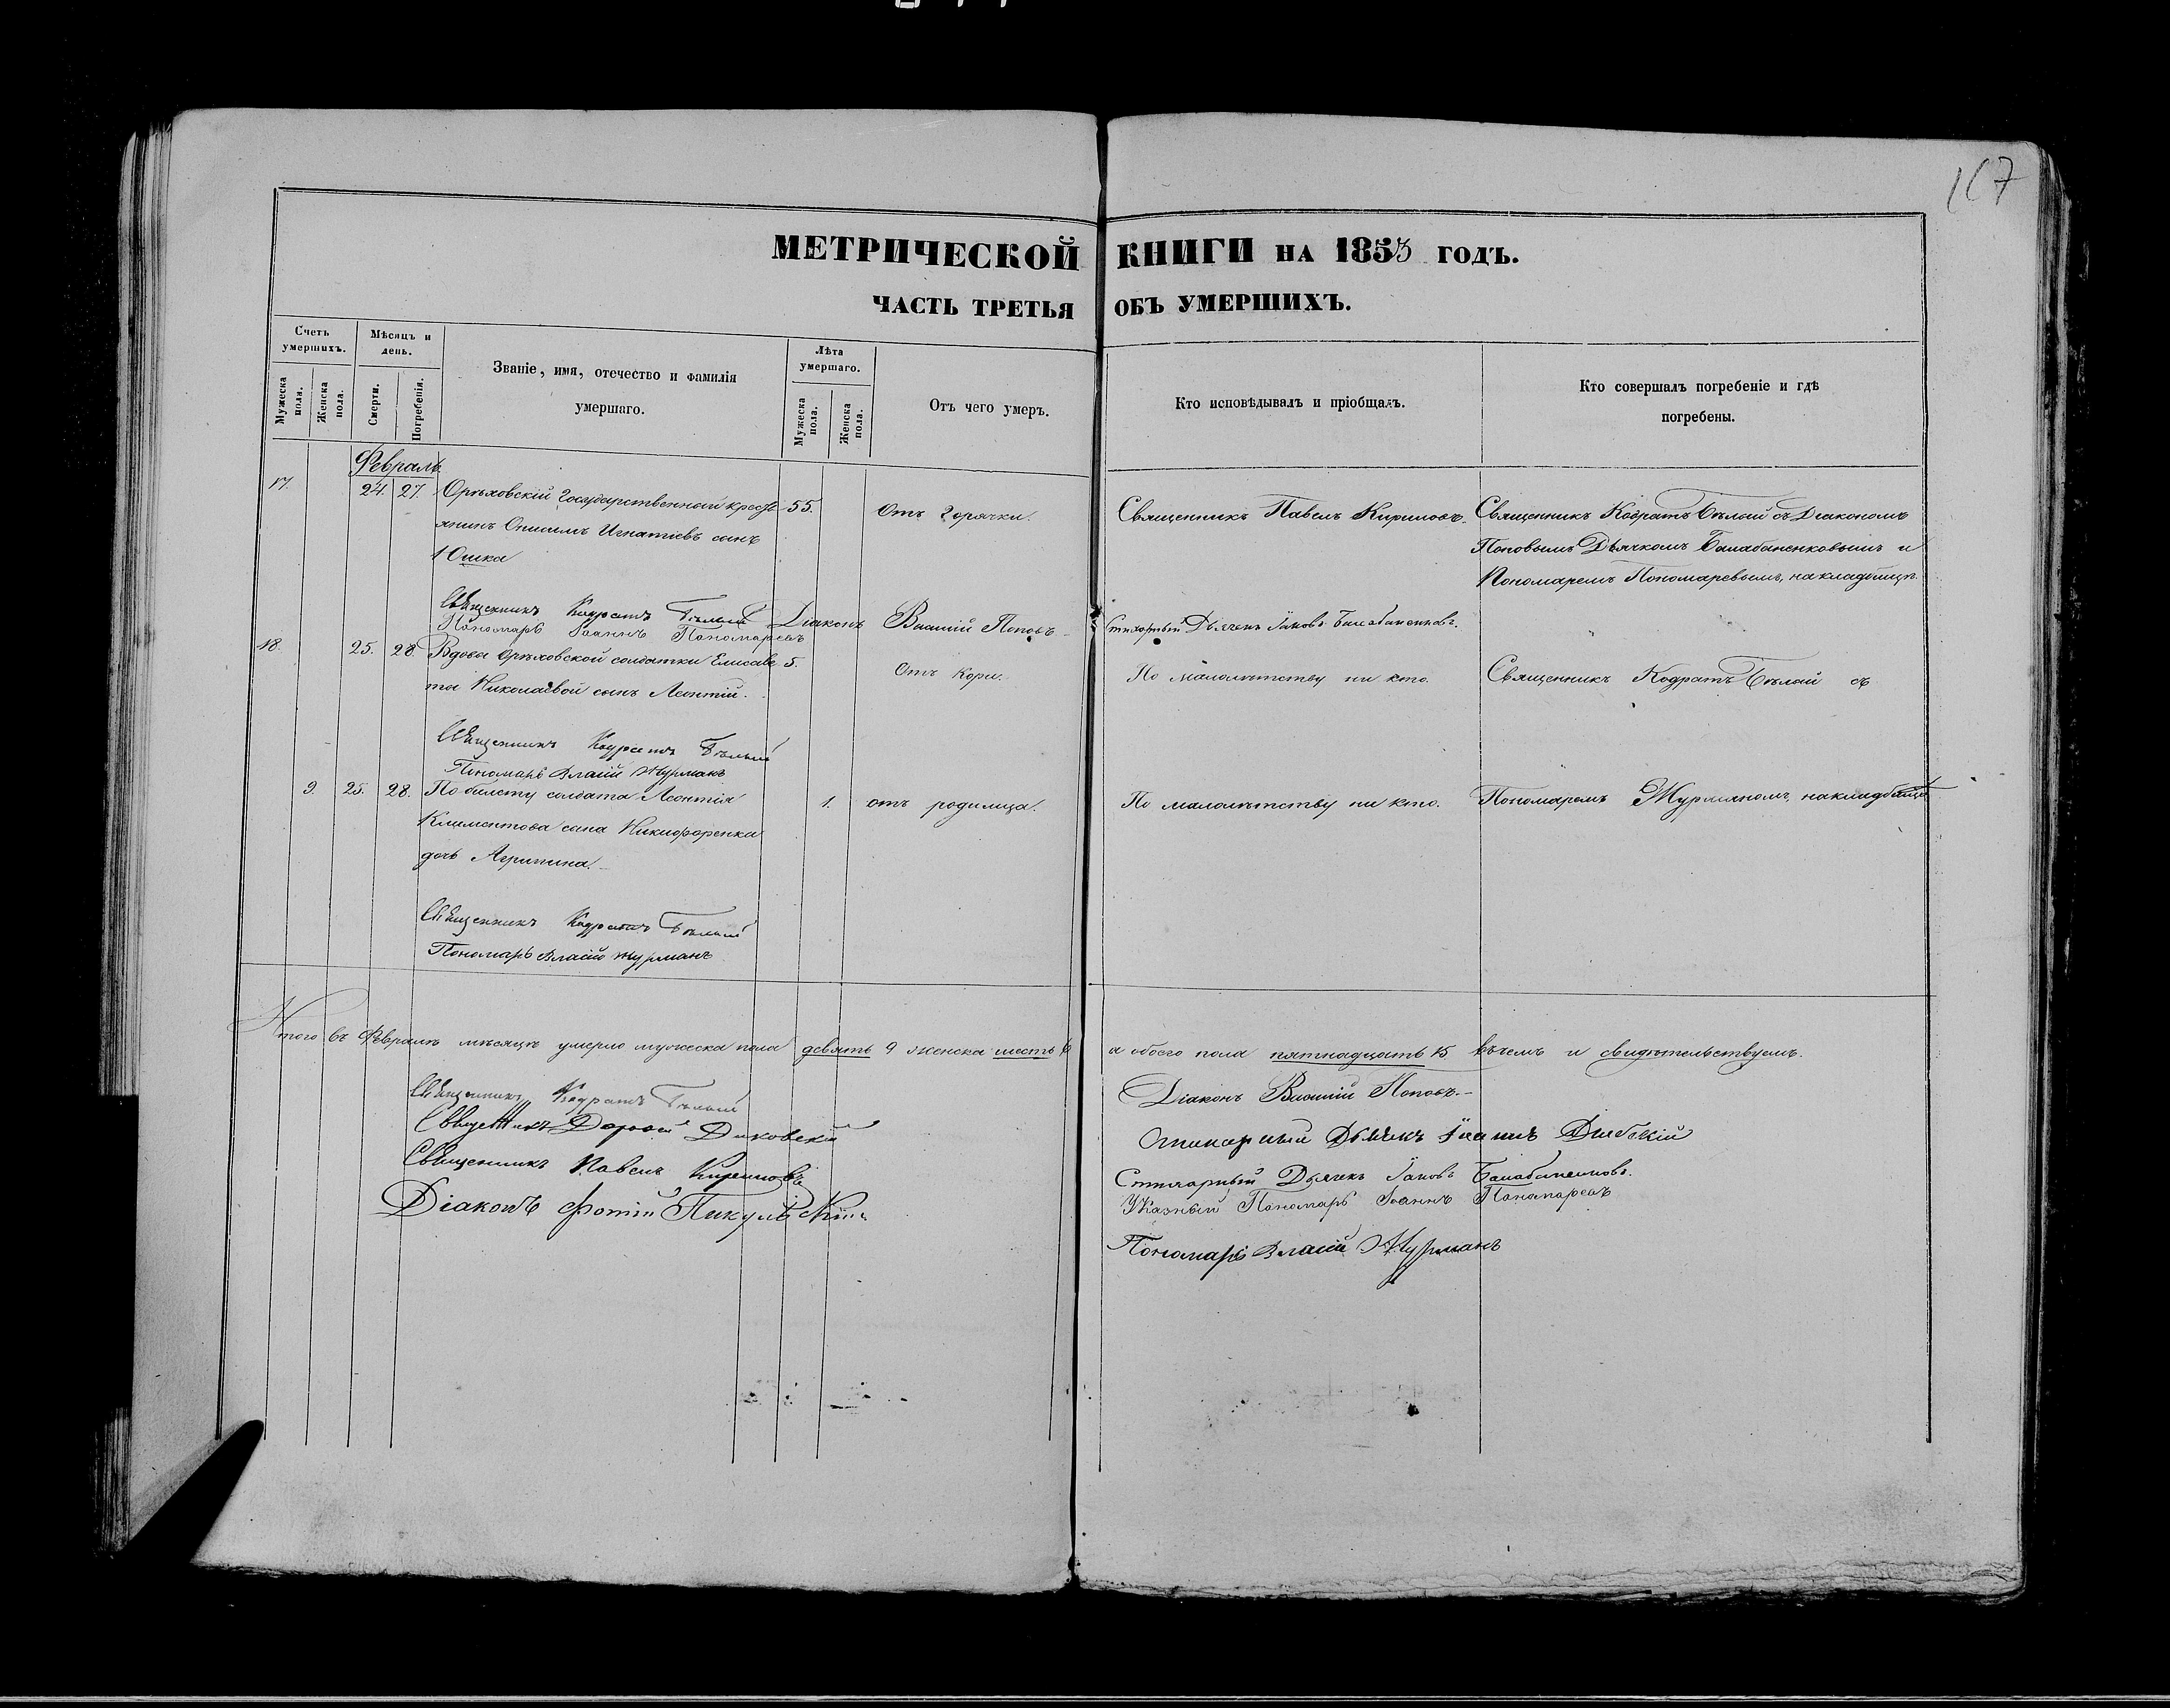 МЕТРИЧЕСКОЙ КНИГИ НА 1853 ГОДЪ.
ЧАСТЬ ТРЕТЬЯ ОБЪ УМЕРШИХЪ.
Счетъ умершихъ.
Мужеска пола.
Женска пола.
Мѣсяцъ и день.
Смерти.
Погребенія.
Званіе, имя, отечество и фамилія
умершаго.
Лѣта умершаго.
Мужеска пола.
Женска пола.
Отъ чего умеръ.
Кто исповѣдывалъ и пріобщалъ.
Кто совершалъ погребеніе и гдѣ
погребены.
Февраль
17. 24. 27. Орѣховскій Государственный кресть 55. Отъ горячки. Священникъ Павелъ Кириловъ. Священникъ Кодратъ Бѣлый съ Діакономъ
янинъ Онисимъ Игнатіевъ сынъ Поповымъ Дьячкомъ Балабаненковымъ и
Юшка Пономаремъ Пономаревымъ, на кладбищѣ.
Священникъ Кодратъ Бѣлый Діаконъ Василій Поповъ Стихарный Дьячекъ Іаковъ Балабаненковъ.
Пономарь Іоаннъ Пономаревъ
18. 25. 28. Вдовы Орѣховской солдатки Елисаве 5. Отъ кори. По малолѣтству ни кто. Священникъ Кодратъ Бѣлый съ
ты Николаевой сынъ Леонтій.
Священникъ Кодратъ Бѣлый
Пономарь Власій Журманъ
9. 25. 28. По билету солдата Леонтія 1. отъ родимца. По малолѣтству ни кто. Пономаремъ Журманомъ, на кладбищѣ
Климентова сына Никифоренка
дочь Агрипина.
Священникъ Кодратъ Бѣлый
Пономарь Власій Журманъ
Итого въ Февралѣ мѣсяцѣ умерло мужеска пола девять 9 женска шесть 6 а обоего пола пятнадцать 15 въ чемъ и свидѣтельствуемъ.
Священникъ Кодратъ Бѣлый
Священникъ Дорофей Диковскій
Священникъ Павелъ Кириловъ
Діаконъ Фотій
Діаконъ Василій Поповъ.
Стихарный Дьячекъ Іоаннъ
Стихарный Дьячекъ Іаковъ Балабаненковъ.
Указный Пономарь Іоаннъ Пономаревъ
Пономарь Власій Журманъ